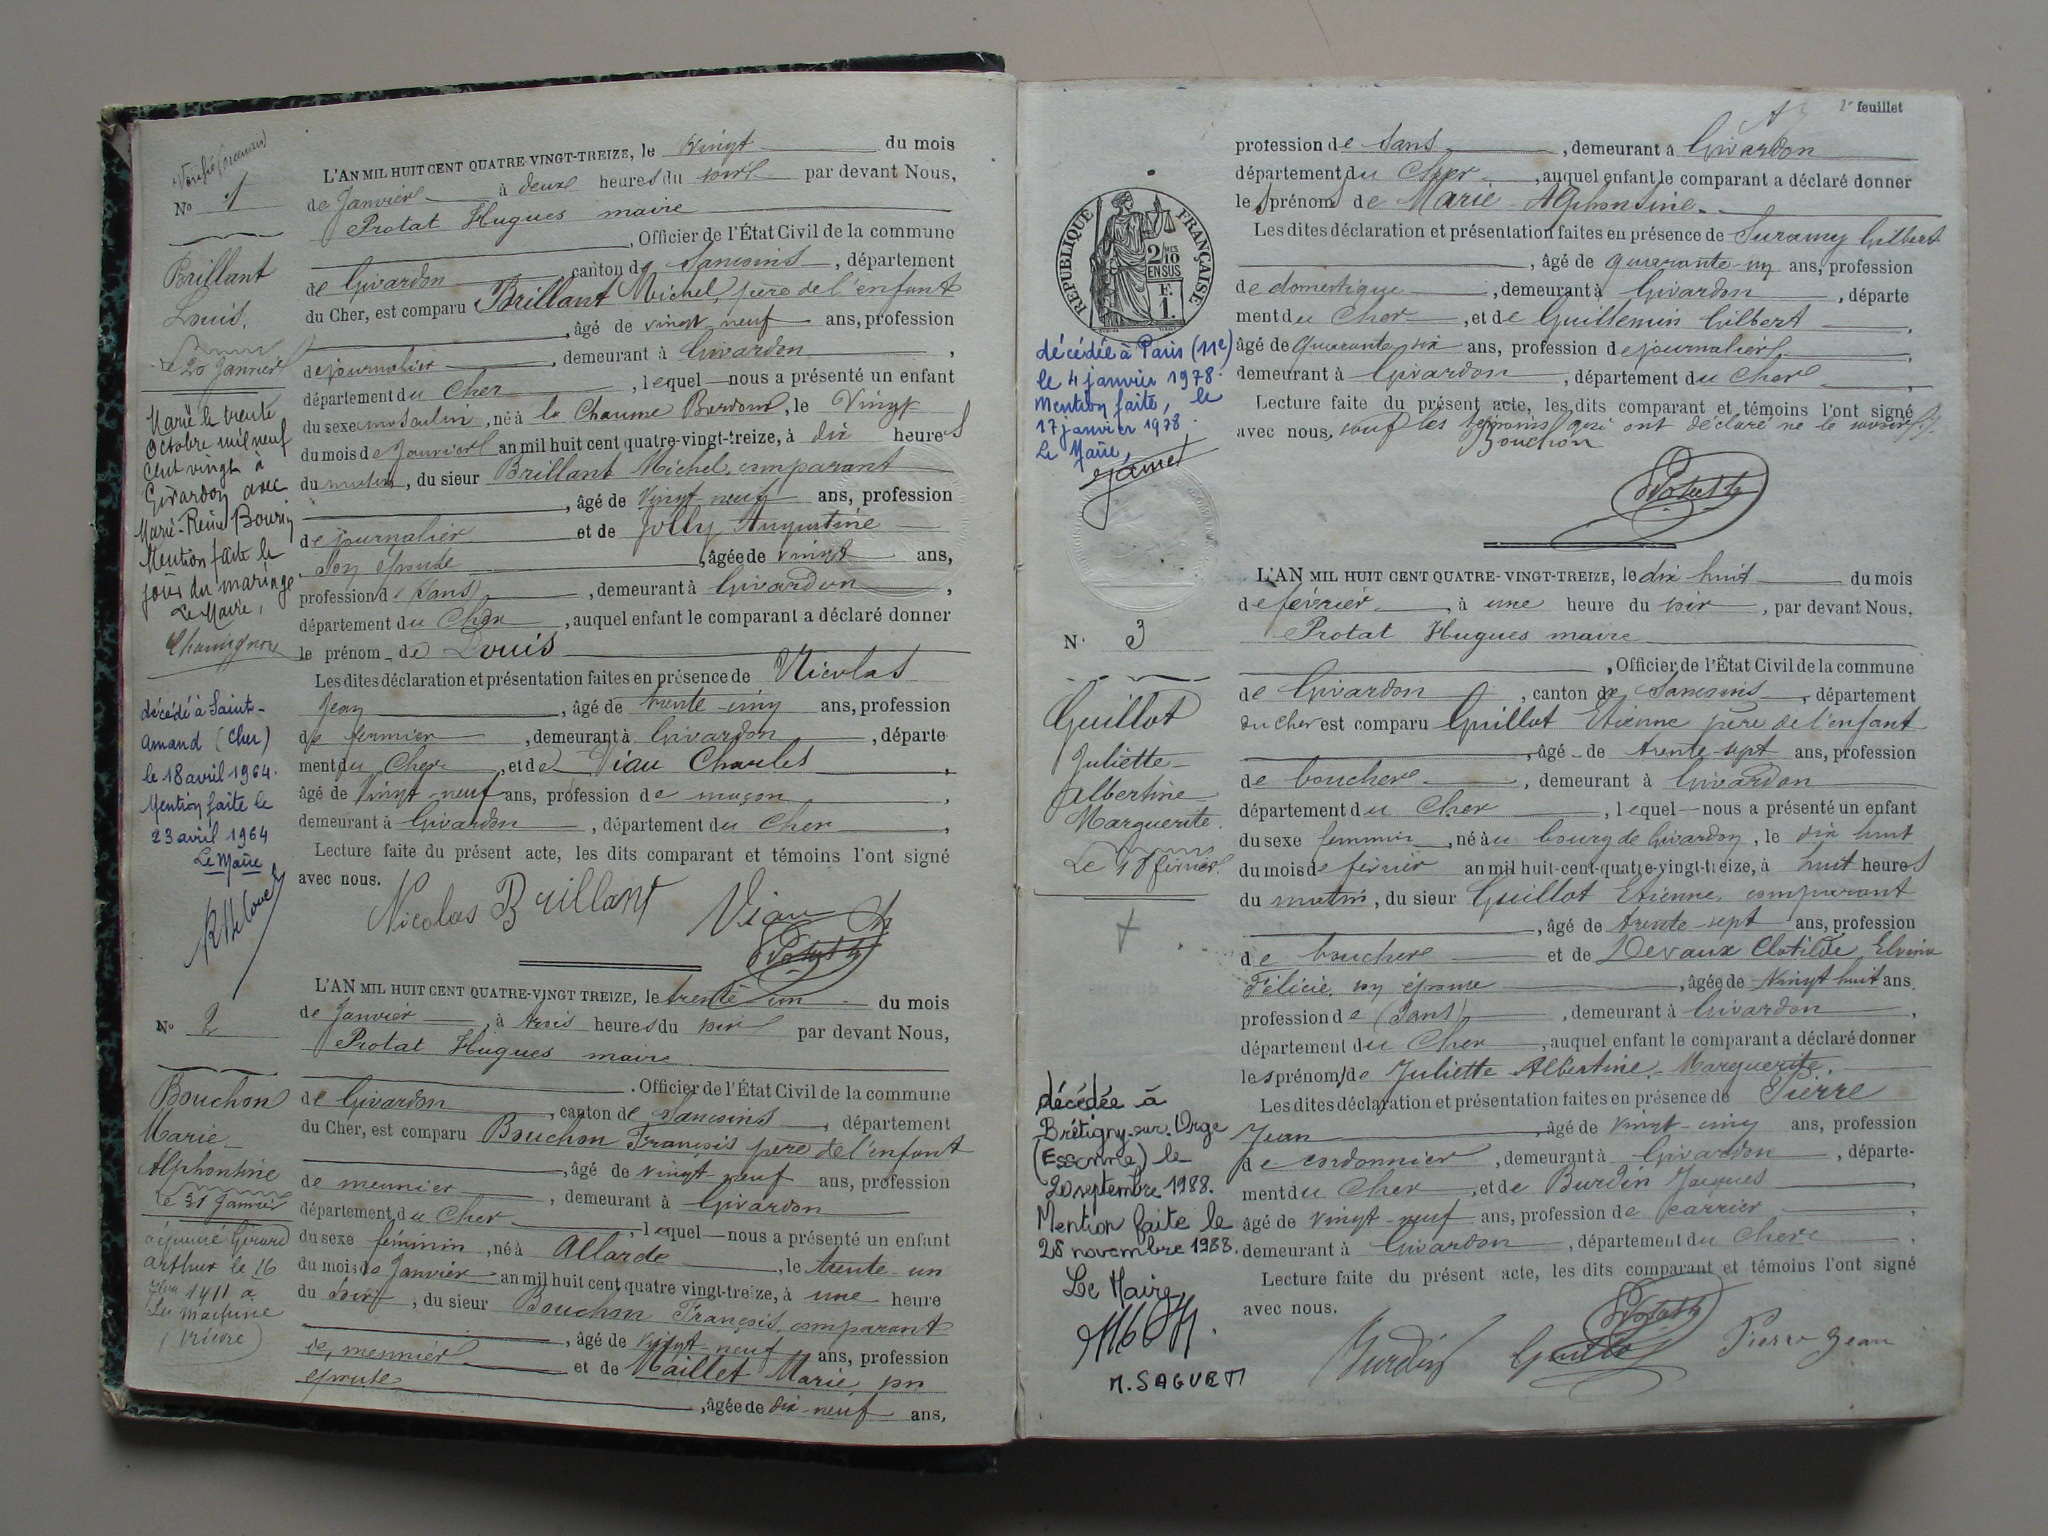 Vérifié
No 1
Brillant
Louis.
Le 20 Janvier
Marié le trente
Octobre mil neuf
cent vingt à
Givardon avec
Marie-Reine
Mention faite le
jour du mariage
Le Maire,
décédé à Saint-
Amand (Cher)
le 18 avril 1964.
Mention faite le
23 avril 1964
Le Maire
L'AN MIL HUIT CENT QUATRE-VINGT-TREIZE, le vingt du mois
de Janvier à deux heures du soir par devant Nous,
Protat Hugues maire
, Officier de l'État Civil de la commune
de Givardon canton de Sancoins, département
du Cher, est comparu Brillant Michel, père de l'enfant
, âgé de vingt neuf ans, profession
de journalier, demeurant à Givardon,
département du Cher, lequel nous a présenté un enfant
du sexe masculin, né à la Chaume, le Vingt
du mois de Janvier an mil huit cent quatre-vingt-treize, à dix heures
du matin, du sieur Brillant Michel, comparant
, âgé de Vingt neuf ans, profession
de journalier et de Jolly Augustine
son épouse, âgée de vingt ans,
profession d (sans), demeurant à Givardon,
département du Cher, auquel enfant le comparant a déclaré donner
le prénom de Louis
Les dites déclaration et présentation faites en présence de Nicolas
Jean, âgé de trente-cinq ans, profession
de fermier, demeurant à Givardon, départe
ment du Cher, et de Viau Charles,
âgé de Vingt-neuf ans, profession de maçon,
demeurant à Givardon, département du Cher,
Lecture faite du présent acte, les dits comparant et témoins l'ont signé
avec nous.
Nicolas Brillant Viau Ch
Protat h
No 2
Bouchon
Marie
Alphonsine
Le 31 Janvier
a épousé Gérard
Arthur le 16
1911 à
La Machine
(Nièvre)
L'AN MIL HUIT CENT QUATRE-VINGT TREIZE, le trente un du mois
de Janvier, à trois heures du soir par devant Nous,
Protat Hugues maire
. Officier de l'État Civil de la commune
de Givardon, canton de Sancoins, département
du Cher, est comparu Bouchon François père de l'enfant
, âgé de vingt neuf ans, profession
de meunier, demeurant à Givardon
département du Cher, lequel nous a présenté un enfant
du sexe féminin, né à Allarde, le trente-un
du mois de Janvier an mil huit cent quatre vingt-treize, à une heure
du soir, du sieur Bouchon François, comparant
, âgé de vingt-neuf ans, profession
de meunier et de Maillet Marie, son
épouse
, âgée de dix-neuf ans,
2e feuillet
RÉPUBLIQUE FRANÇAISE
2/10 MES
EN SUS
F.
1.
décédée à Paris (11e)
le 4 janvier 1978.
Mention faite, le
17 janvier 1978.
Le Maire,
Jamet
profession de sans, demeurant à Givardon
département du Cher, auquel enfant le comparant a déclaré donner
les prénoms de Marie Alphonsine.
Les dites déclaration et présentation faites en présence de Suramy Gilbert
, âgé de quarante-un ans, profession
de domestique, demeurant à Givardon, départe
ment du Cher, et de Guillemin Gilbert,
âgé de Quarante six ans, profession de journalier,
demeurant à Givardon, département du Cher,
Lecture faite du présent acte, les dits comparant et témoins l'ont signé
avec nous, sauf les témoins qui ont déclaré ne le savoir
Bouchon
Protat h
N. 3
Guillot
Juliette
Albertine
Marguerite.
Le 18 février.
décédée à
Brétigny-sur-Orge
(Essonne) le
20 septembre 1988.
Mention faite le
28 novembre 1988.
Le Maire,
M. SAGUET
L'AN MIL HUIT CENT QUATRE-VINGT-TREIZE, le dix huit du mois
de février, à une heure du soir, par devant Nous.
Protat Hugues maire
, Officier de l'État Civil de la commune
de Givardon, canton de Sancoins, département
du Cher est comparu Guillot Etienne père de l'enfant
, âgé de trente-sept ans, profession
de boucher, demeurant à Givardon
département du Cher, lequel nous a présenté un enfant
du sexe féminin, né au bourg de Givardon, le dix huit
du mois de février an mil huit-cent-quatre-vingt-treize, à huit heures
du matin, du sieur Guillot Etienne, comparant
, âgé de trente-sept ans, profession
de boucher et de Devaux Clotilde Elvina
Félicie, son épouse, âgée de Vingt huit ans.
profession de (sans), demeurant à Givardon,
département du Cher, auquel enfant le comparant a déclaré donner
les prénoms de Juliette Albertine Marguerite.
Les dites déclaration et présentation faites en présence de Pierre
Jean, âgé de vingt-cinq ans, profession
de cordonnier, demeurant à Givardon, départe-
ment du Cher, et de Burdin Jacques,
âgé de vingt-neuf ans, profession de carrier,
demeurant à Givardon, département du Cher,
Lecture faite du présent acte, les dits comparant et témoins l'ont signé
avec nous.
Protat h
Burdin Guillot Pierre Jean